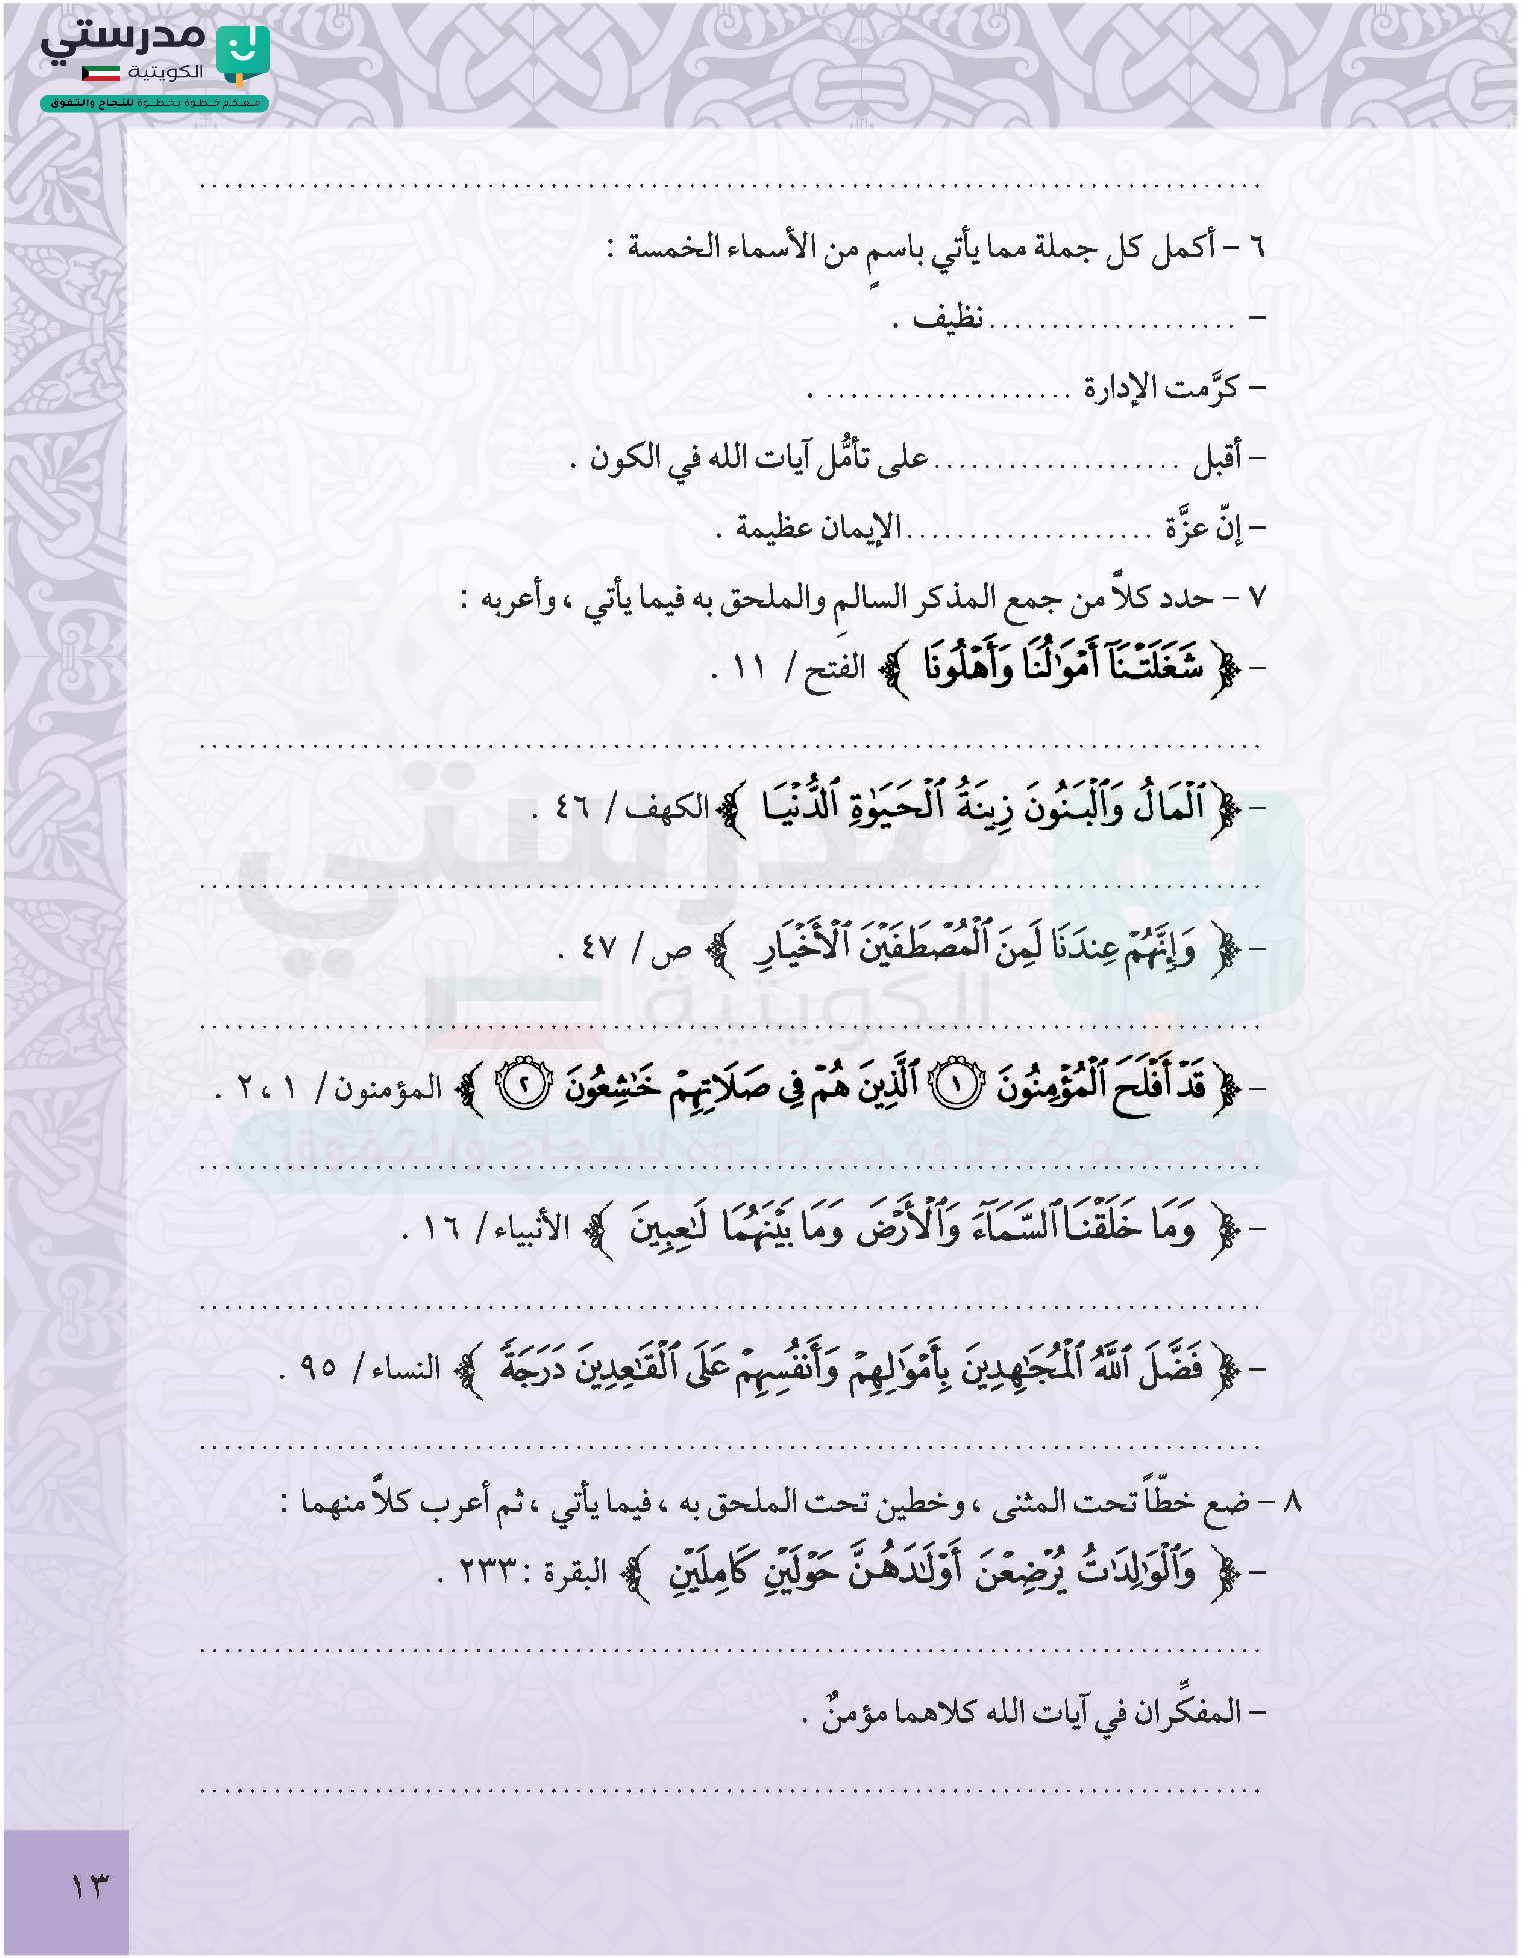 مدرستي
الكويتية
معكم خطوة بخطوة للنجاح والتفوق
................................................................
٦ – أكمل كل جملة مما يأتي باسمٍ من الأسماء الخمسة :
– ....................نظيف .
– كرَّمت الإدارة .................... .
– أقبل ....................على تأمُّل آيات الله في الكون .
– إنّ عزَّة ....................الإيمان عظيمة .
٧ – حدد كلاًّ من جمع المذكر السالمِ والملحق به فيما يأتي ، وأعربه :
– ﴿ شَغَلَتْنَآ أَمْوَٰلُنَا وَأَهْلُونَا ﴾ الفتح / ١١ .
................................................................
– ﴿ ٱلْمَالُ وَٱلْبَنُونَ زِينَةُ ٱلْحَيَوٰةِ ٱلدُّنْيَا ﴾ الكهف / ٤٦ .
................................................................
– ﴿ وَإِنَّهُمْ عِندَنَا لَمِنَ ٱلْمُصْطَفَيْنَ ٱلْأَخْيَارِ ﴾ ص / ٤٧ .
................................................................
– ﴿ قَدْ أَفْلَحَ ٱلْمُؤْمِنُونَ ١ ٱلَّذِينَ هُمْ فِى صَلَاتِهِمْ خَٰشِعُونَ ٢ ﴾ المؤمنون / ١ ، ٢ .
................................................................
– ﴿ وَمَا خَلَقْنَا ٱلسَّمَآءَ وَٱلْأَرْضَ وَمَا بَيْنَهُمَا لَٰعِبِينَ ﴾ الأنبياء / ١٦ .
................................................................
– ﴿ فَضَّلَ ٱللَّهُ ٱلْمُجَٰهِدِينَ بِأَمْوَٰلِهِمْ وَأَنفُسِهِمْ عَلَى ٱلْقَٰعِدِينَ دَرَجَةً ﴾ النساء / ٩٥ .
................................................................
٨ – ضع خطّاً تحت المثنى ، وخطين تحت الملحق به ، فيما يأتي ، ثم أعرب كلاًّ منهما :
– ﴿ وَٱلْوَٰلِدَٰتُ يُرْضِعْنَ أَوْلَٰدَهُنَّ حَوْلَيْنِ كَامِلَيْنِ ﴾ البقرة : ٢٣٣ .
................................................................
– المفكِّران في آيات الله كلاهما مؤمنٌ .
................................................................
١٣